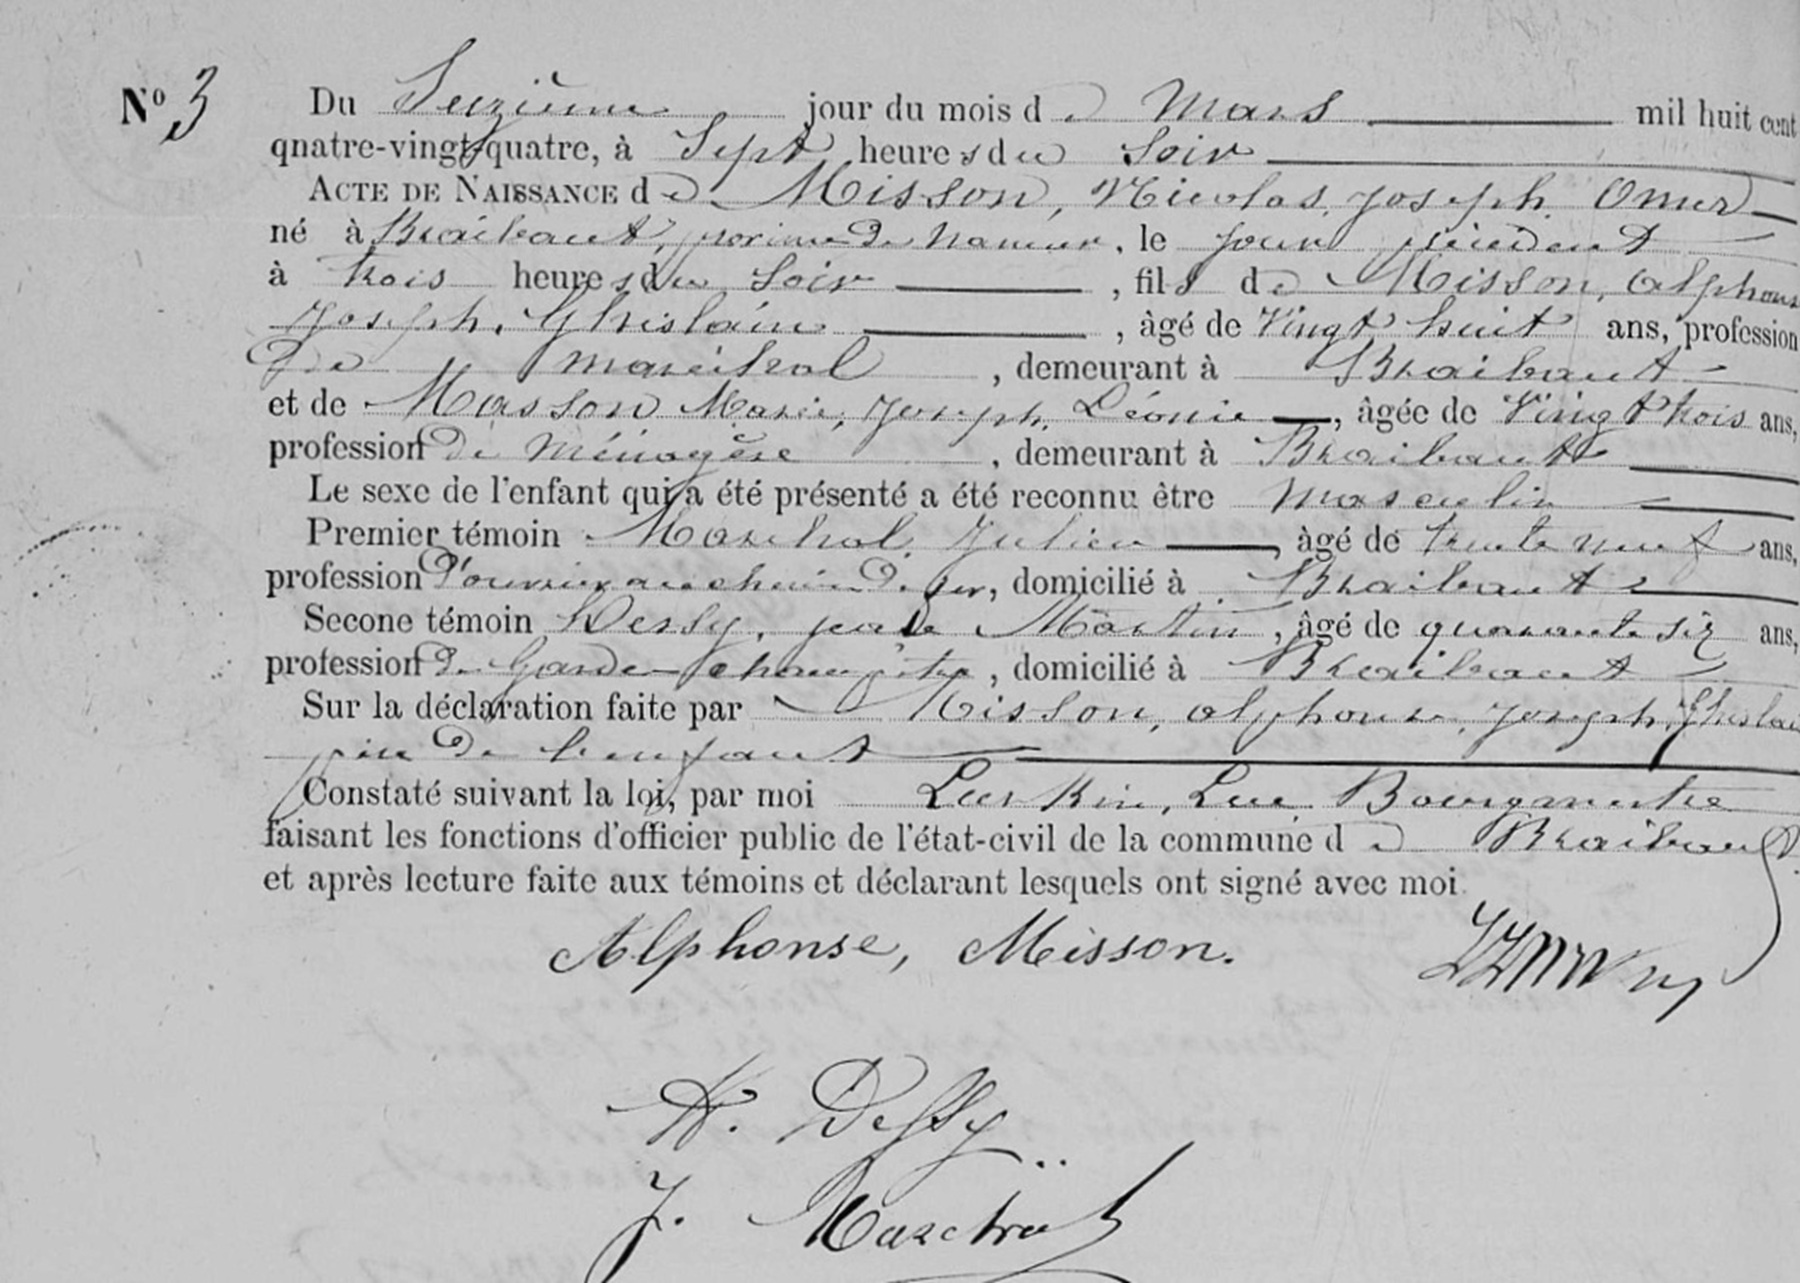 No 3
Du Seizième jour du mois de Mars mil huit cent
quatre-vingt-quatre, à Sept heures du Soir
ACTE DE NAISSANCE de Misson, Nicolas, Joseph, Omer
né à Braibant, province de Namur, le jour précédent
à trois heures du Soir, fils de Misson, Alphonse
Joseph, Ghislain, âgé de Vingt huit ans, profession
de maréchal, demeurant à Braibant
et de Masson Marie, Joseph, Léonie, âgée de Vingt trois ans,
profession de ménagère, demeurant à Braibant
Le sexe de l'enfant qui a été présenté a été reconnu être masculin
Premier témoin Marchal, Julien, âgé de trente neuf ans,
profession d'ouvrier au chemin de fer, domicilié à Braibant
Secone témoin Dessy, Martin, âgé de quarante six ans,
profession de Garde-champêtre, domicilié à Braibant
Sur la déclaration faite par Misson, Alphonse, Joseph, Ghislain
père de l'enfant
Constaté suivant la loi, par moi Lurkin, Luc Bourgmestre
faisant les fonctions d'officier public de l'état-civil de la commune de Braibant
et après lecture faite aux témoins et déclarant lesquels ont signé avec moi
Alphonse, Misson.
Dessy
J. Marchal